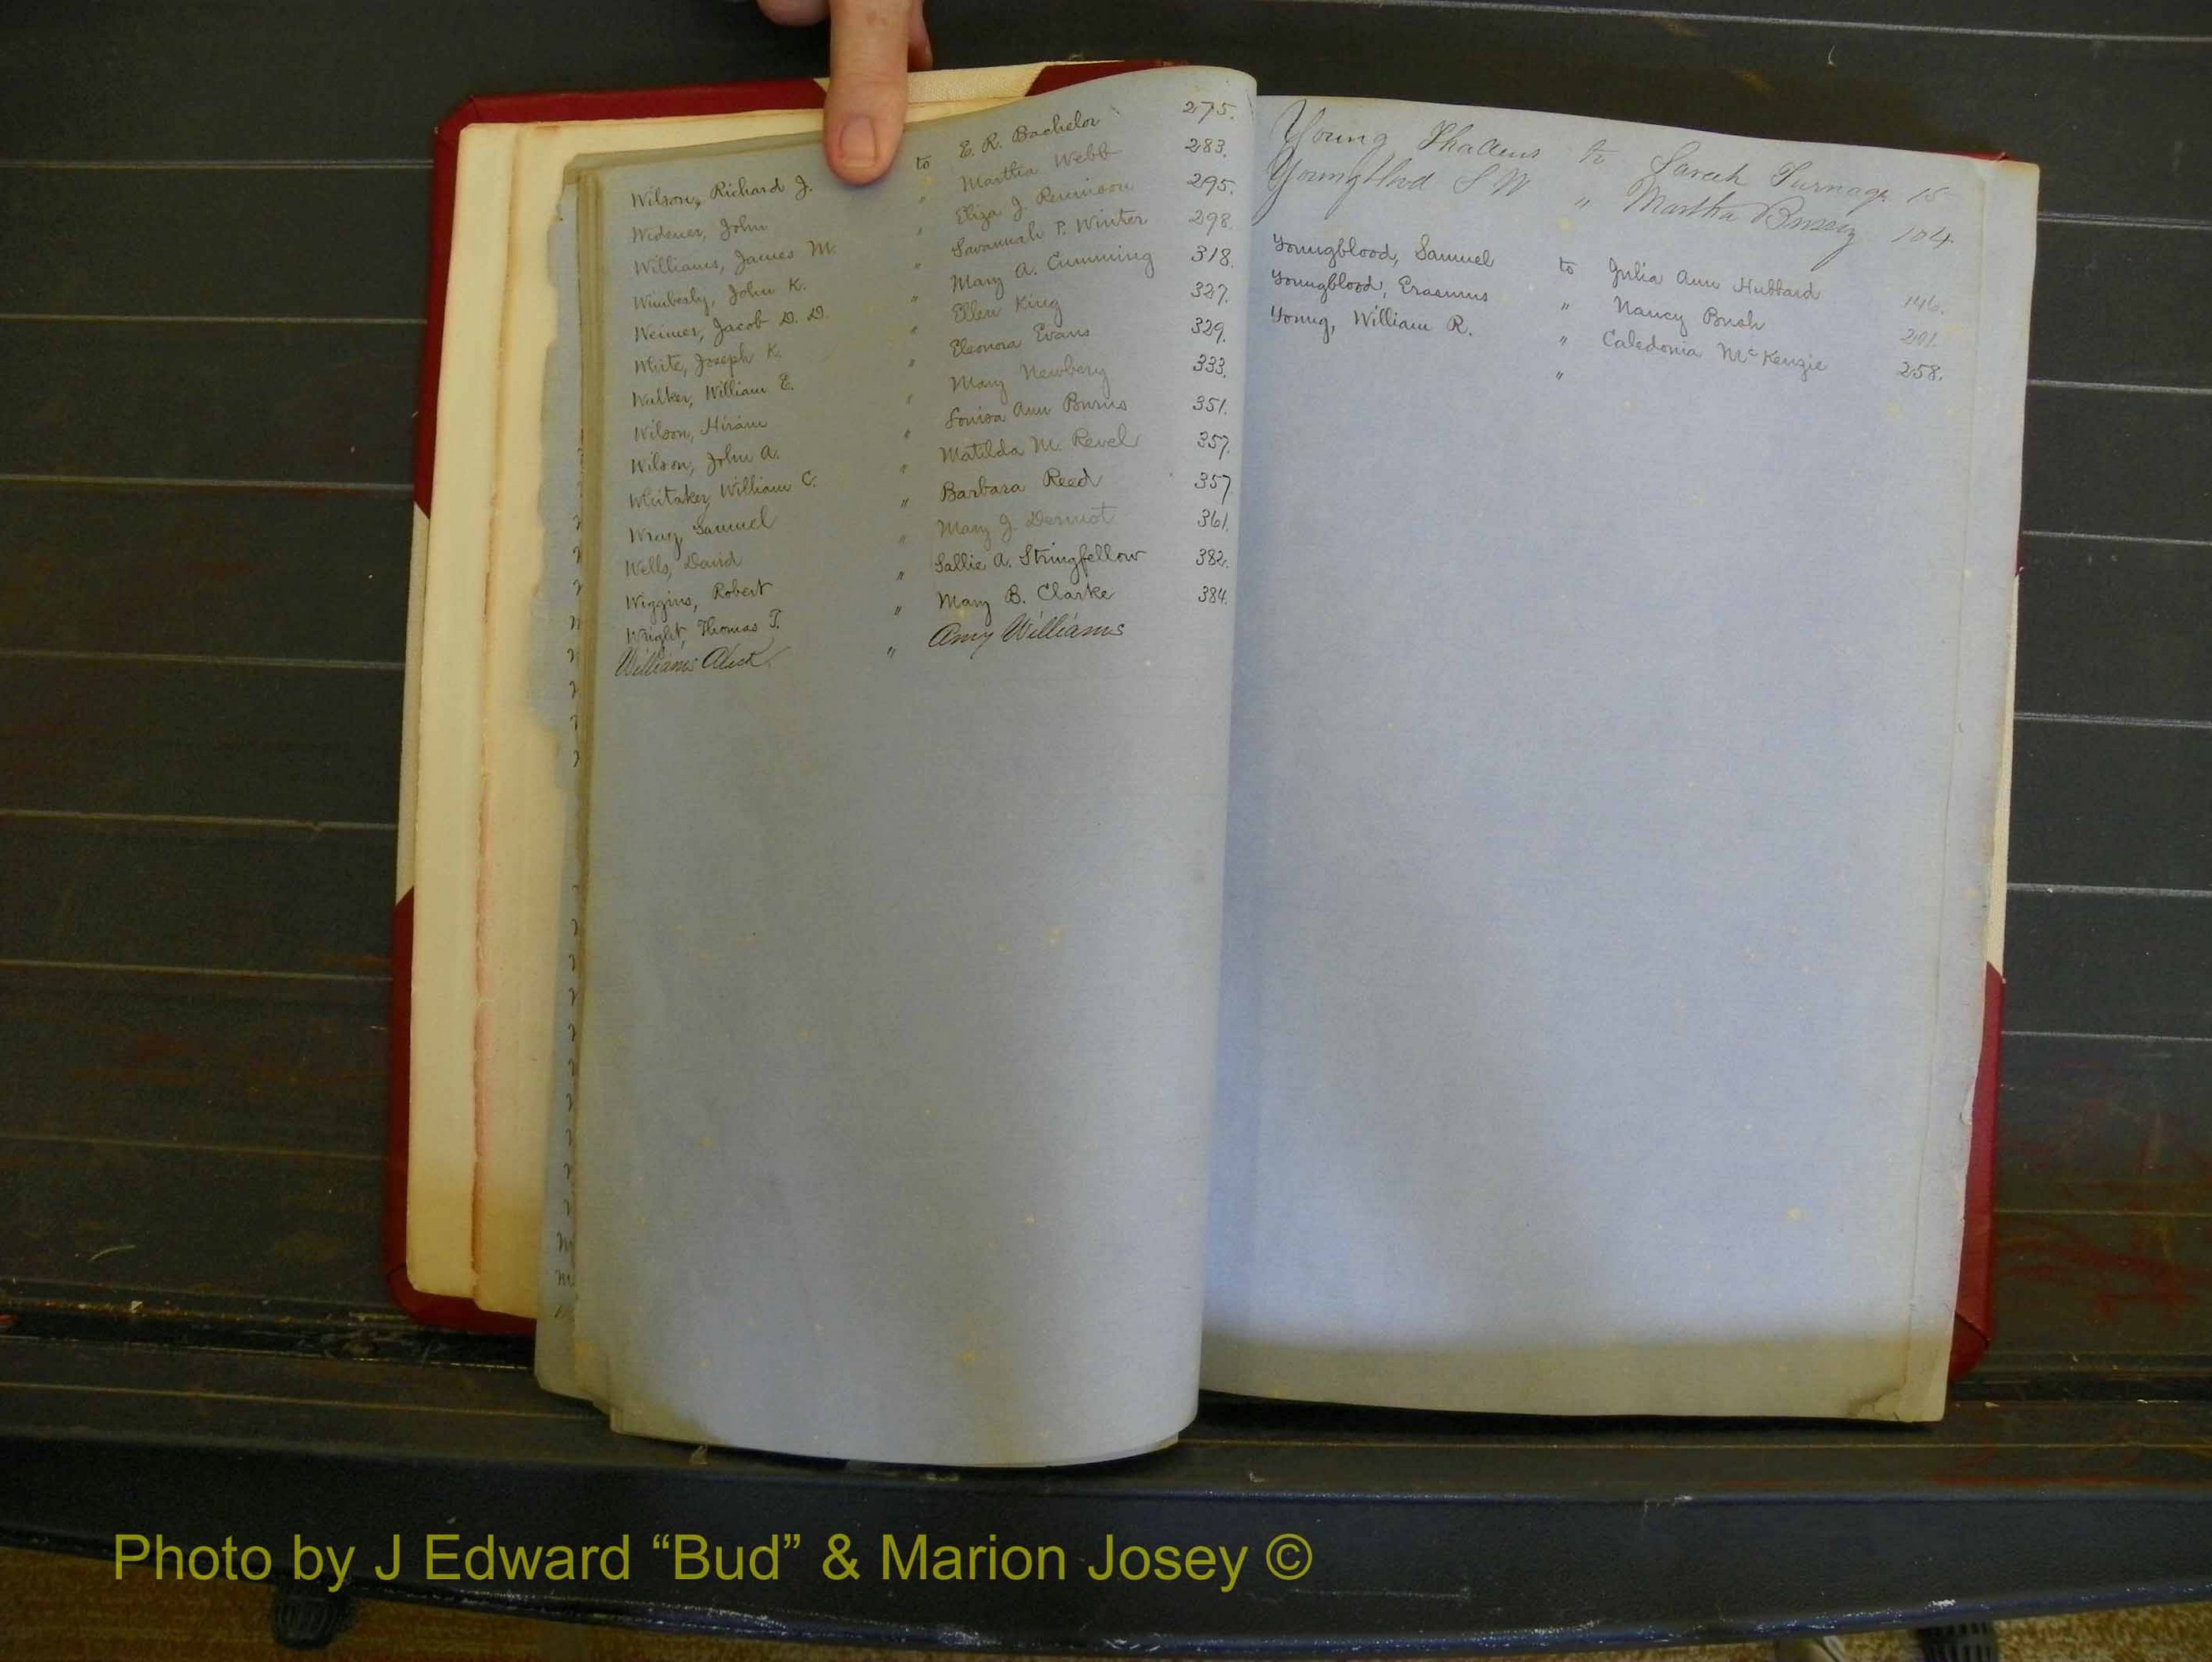 Wilson, Richard J. to E. R. Bachelor 275.
Widener, John " Martha Webb 283.
Williams, James M. " Eliza J. Renison 295.
Wimberly, John K. " Savannah P. Winter 298.
Weimer, Jacob D. D. " Mary A. Cumming 318.
White, Joseph K. " Ellen King 327.
Walker, William E. " Eleonora Evans 329.
Wilson, Hiram " Mary Newbery 333.
Wilson, John A. " Louisa Ann Burns 351.
Whitaker, William C. " Matilda M. Revel 357.
Wray, Samuel " Barbara Reed 357
Wells, David " Mary J. Dermot 361.
Wiggins, Robert " Sallie A. Stringfellow 382.
Wright, Thomas T. " Mary B. Clarke 384.
Williams Aleck " Amy Williams
Young to Sarah Turnage 15
Youngblood S W " Martha 104
Youngblood, Samuel to Julia Ann Hubbard 146.
Youngblood, Erasmus " Nancy Bush 201.
Young, William R. " Caledonia McKenzie 258.
"
Photo by J Edward “Bud” & Marion Josey ©